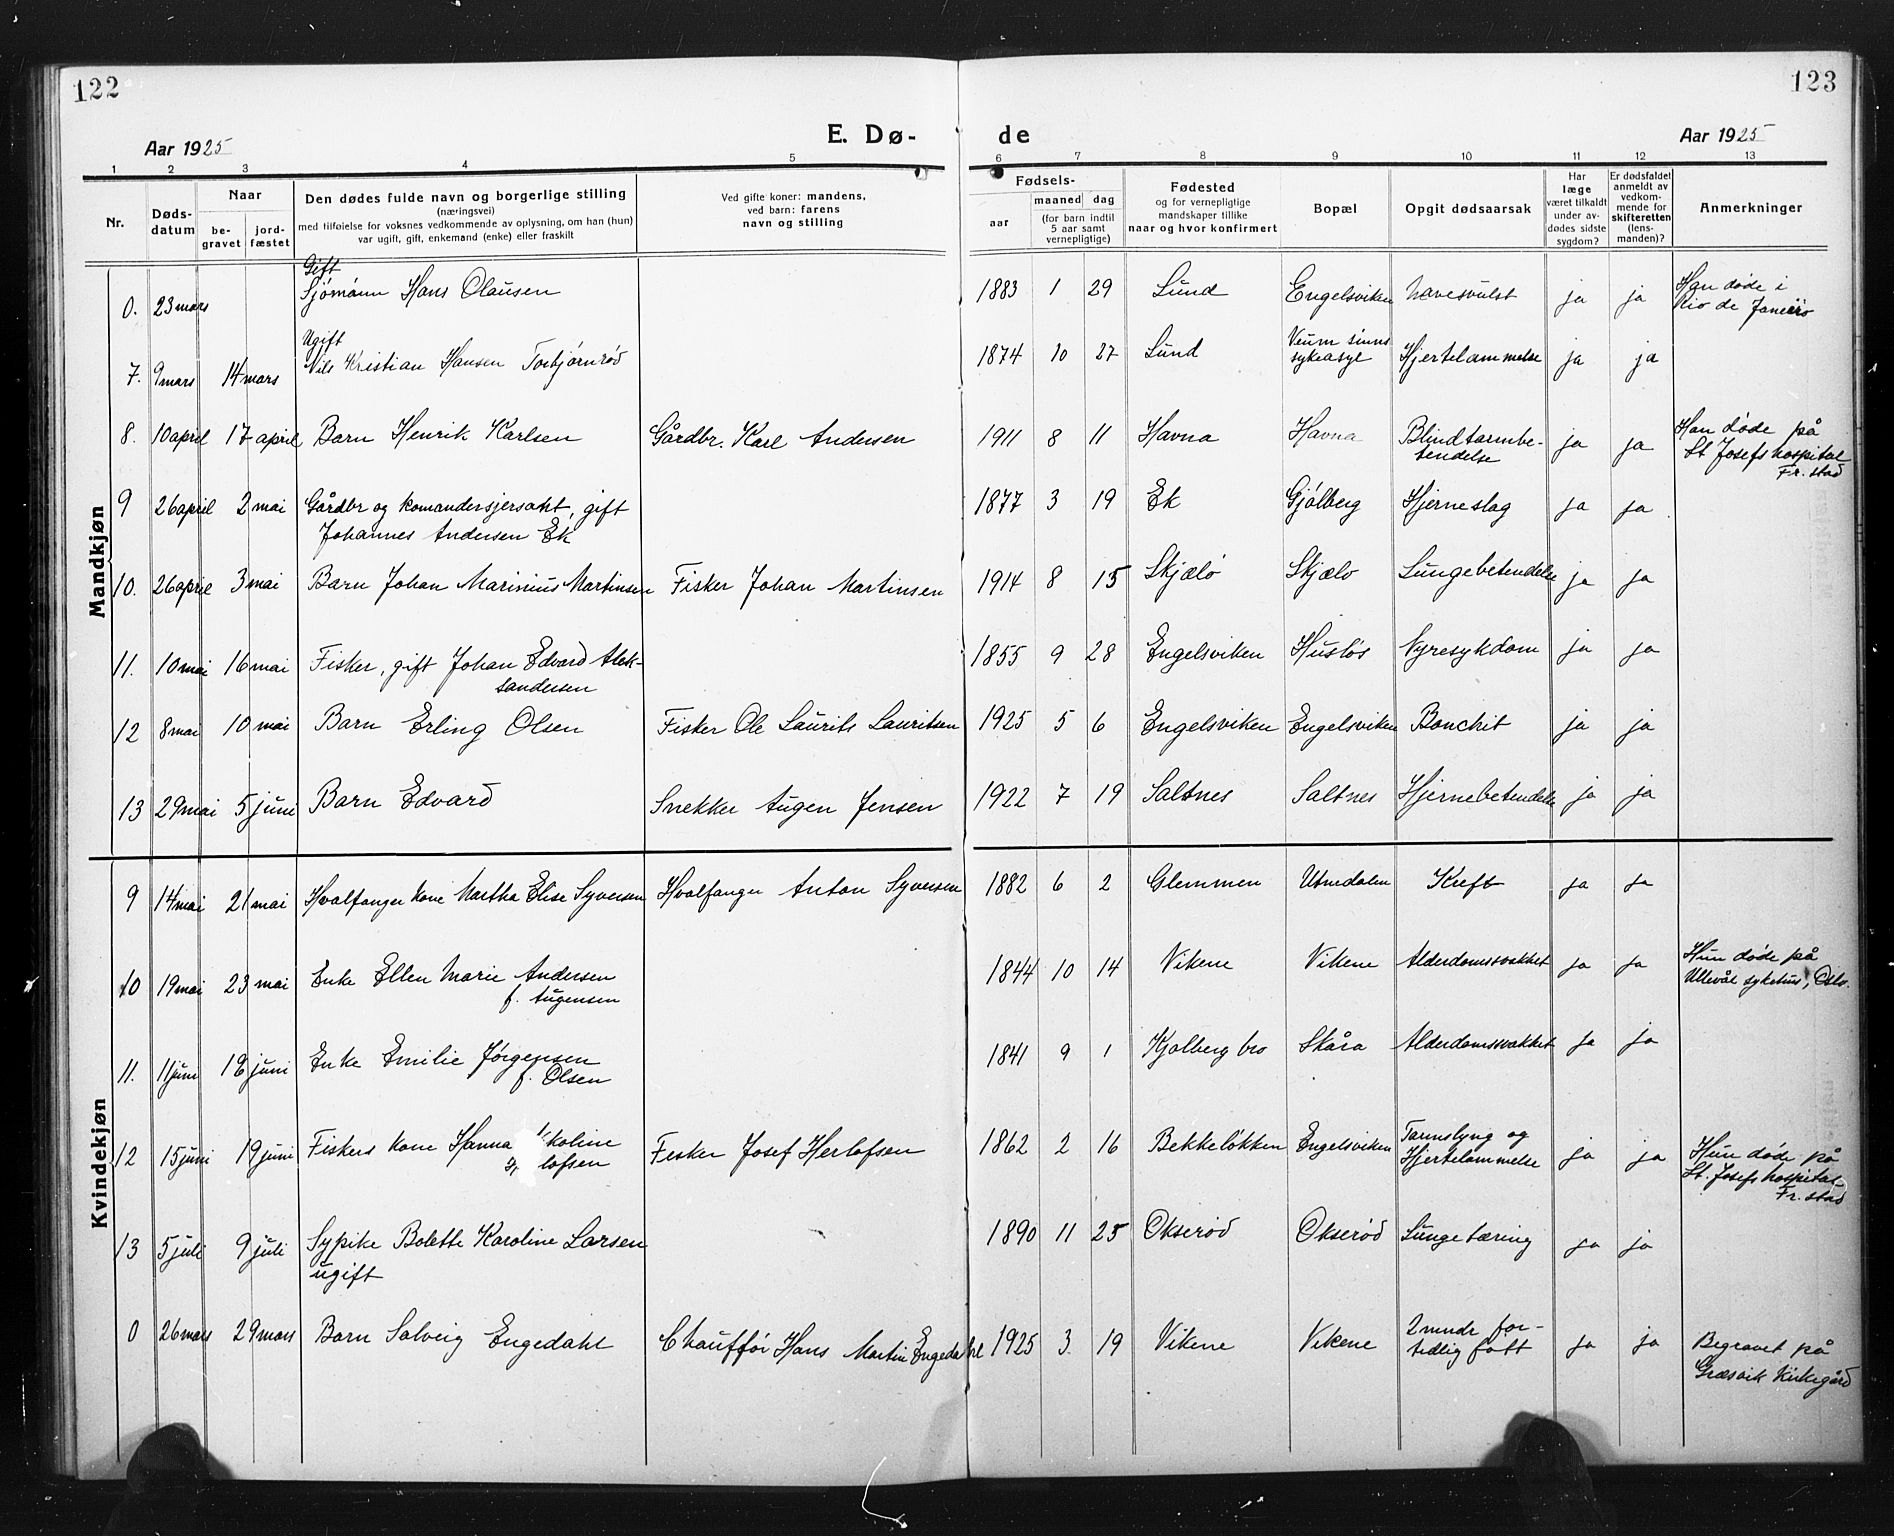 122
123
Aar 1925
E. Dø-
de
Aar 1925
1 2 3 4 5 6 7 8 9 10 11 12 13
Nr.
Døds-
datum
Naar
be-
gravet
jord-
fæstet
Den dødes fulde navn og borgerlige stilling
(næringsvei)
med tilføielse for voksnes vedkommende av oplysning, om han (hun)
var ugift, gift, enkemand (enke) eller fraskilt
Ved gifte koner: mandens,
ved barn: farens
navn og stilling
Fødsels-
aar
maaned dag
(for barn indtil
5 aar samt
vernepligtige)
Fødested
og for vernepligtige
mandskaper tillike
naar og hvor konfirmert
Bopæl
Opgit dødsaarsak
Har
læge
været tilkaldt
under av-
dødes sidste
sygdom?
Er dødsfaldet
anmeldt av
vedkom-
mende for
skifteretten
(lens-
manden)?
Anmerkninger
Mandkjøn
Gift
0. 23 mars Sjömann Hans Olausen 1883 1 29 Lund Engelsviken Mavesvulst ja ja Han døde i
Rio de Janeiro
Ugift
7. 9 mars 14 mars Nils Kristian Hansen Torbjørnrød 1874 10 27 Lund Veum sinns
sykeasyl Hjertelammelse ja ja
8. 10 april 17 april Barn Henrik Karlsen Gårdbr. Karl Andersen 1911 8 11 Havna Havna Blindtarmbe-
tendelse ja ja Han døde på
St Josefs hospital
Fr.stad
9 26 april 2 mai Gårdbr og komandersjersakt, gift
Johannes Andersen Ek 1877 3 19 Ek Gjølberg Hjerneslag ja ja
10. 26 april 3 mai Barn Johan Marinius Martinsen Fisker Johan Martinsen 1914 8 15 Skjælø Skjælø Lungebetendelse ja ja
11. 10 mai 16 mai Fisker, gift Johan Edvard Alek-
sandersen 1855 9 28 Engelsviken Husløs Nyresykdom ja ja
12 8 mai 10 mai Barn Erling Olsen Fisker Ole Laurits Lauritsen 1925 5 6 Engelsviken Engelsviken Bonchit ja ja
13 29 mai 5 juni Barn Edvard Snekker Augen Jensen 1922 7 19 Saltnes Saltnes Hjernebetendelse ja ja
Kvindekjøn
9 14 mai 21 mai Hvalfanger kone Martha Elise Syversen Hvalfanger Anton Syversen 1882 6 2 Glemmen Utnedalen Kreft ja ja
10 19 mai 23 mai Enke Ellen Marie Andersen
f. Augensen 1844 10 14 Vikene Vikene Alderdomssvakhet ja ja Hun døde på
Ullevål sykehus, Oslo.
11. 11 juni 18 juni Enke Emilie Jørgensen
f. Olsen 1841 9 1 Kjølberg bro Skåra Alderdomssvakhet ja ja
12 15 juni 19 juni Fiskers kone Hanna koline
lofsen Fisker Josef Herlofsen 1862 2 16 Bekkeløkken Engelsviken Tarmslyng og
Hjertelammelse ja ja Hun døde på
St. Josefs hospital
Fr. stad
13 5 juli 9 juli Sypike Bolette Karoline Larsen
ugift 1890 11 25 Økserød Økserød Lungetæring ja ja
0 26 mars 29 mars Barn Solveig Engedahl Chauffør Hans Martin Engedahl 1925 3 19 Vikene Vikene 2 mndr for-
tidlig født ja ja Begravet på
Græsvik Kirkegård